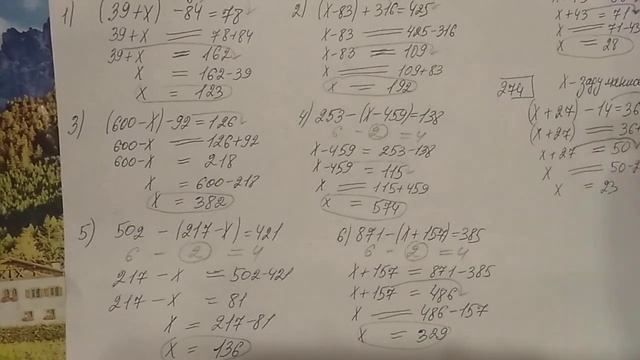 1) (39+x) -84=78
39+x = 78+84
39+x = 162
x = 162-39
x = 123
2) (x-83)+316=425
x-83 = 425-316
x-83 = 109
x = 109+83
x = 192
3) (600-x)-92=126
600-x = 126+92
600-x = 218
x = 600-218
x = 382
4) 253-(x-459)=138
6 - 2 = 4
x-459 = 253-138
x-459 = 115
x = 115+459
x = 574
5) 502 - (217-x)=421
6 - 2 = 4
217-x = 502-421
217-x = 81
x = 217-81
x = 136
6) 871-(x+157)=385
6 - 2 = 4
x+157 = 871-385
x+157 = 486
x = 486-157
x = 329
x+43 = 71
x = 71-43
x = 28
274 x-задумано
(x+27)-14=36
(x+27) = 36
x+27 = 50
x = 50-2
x = 23